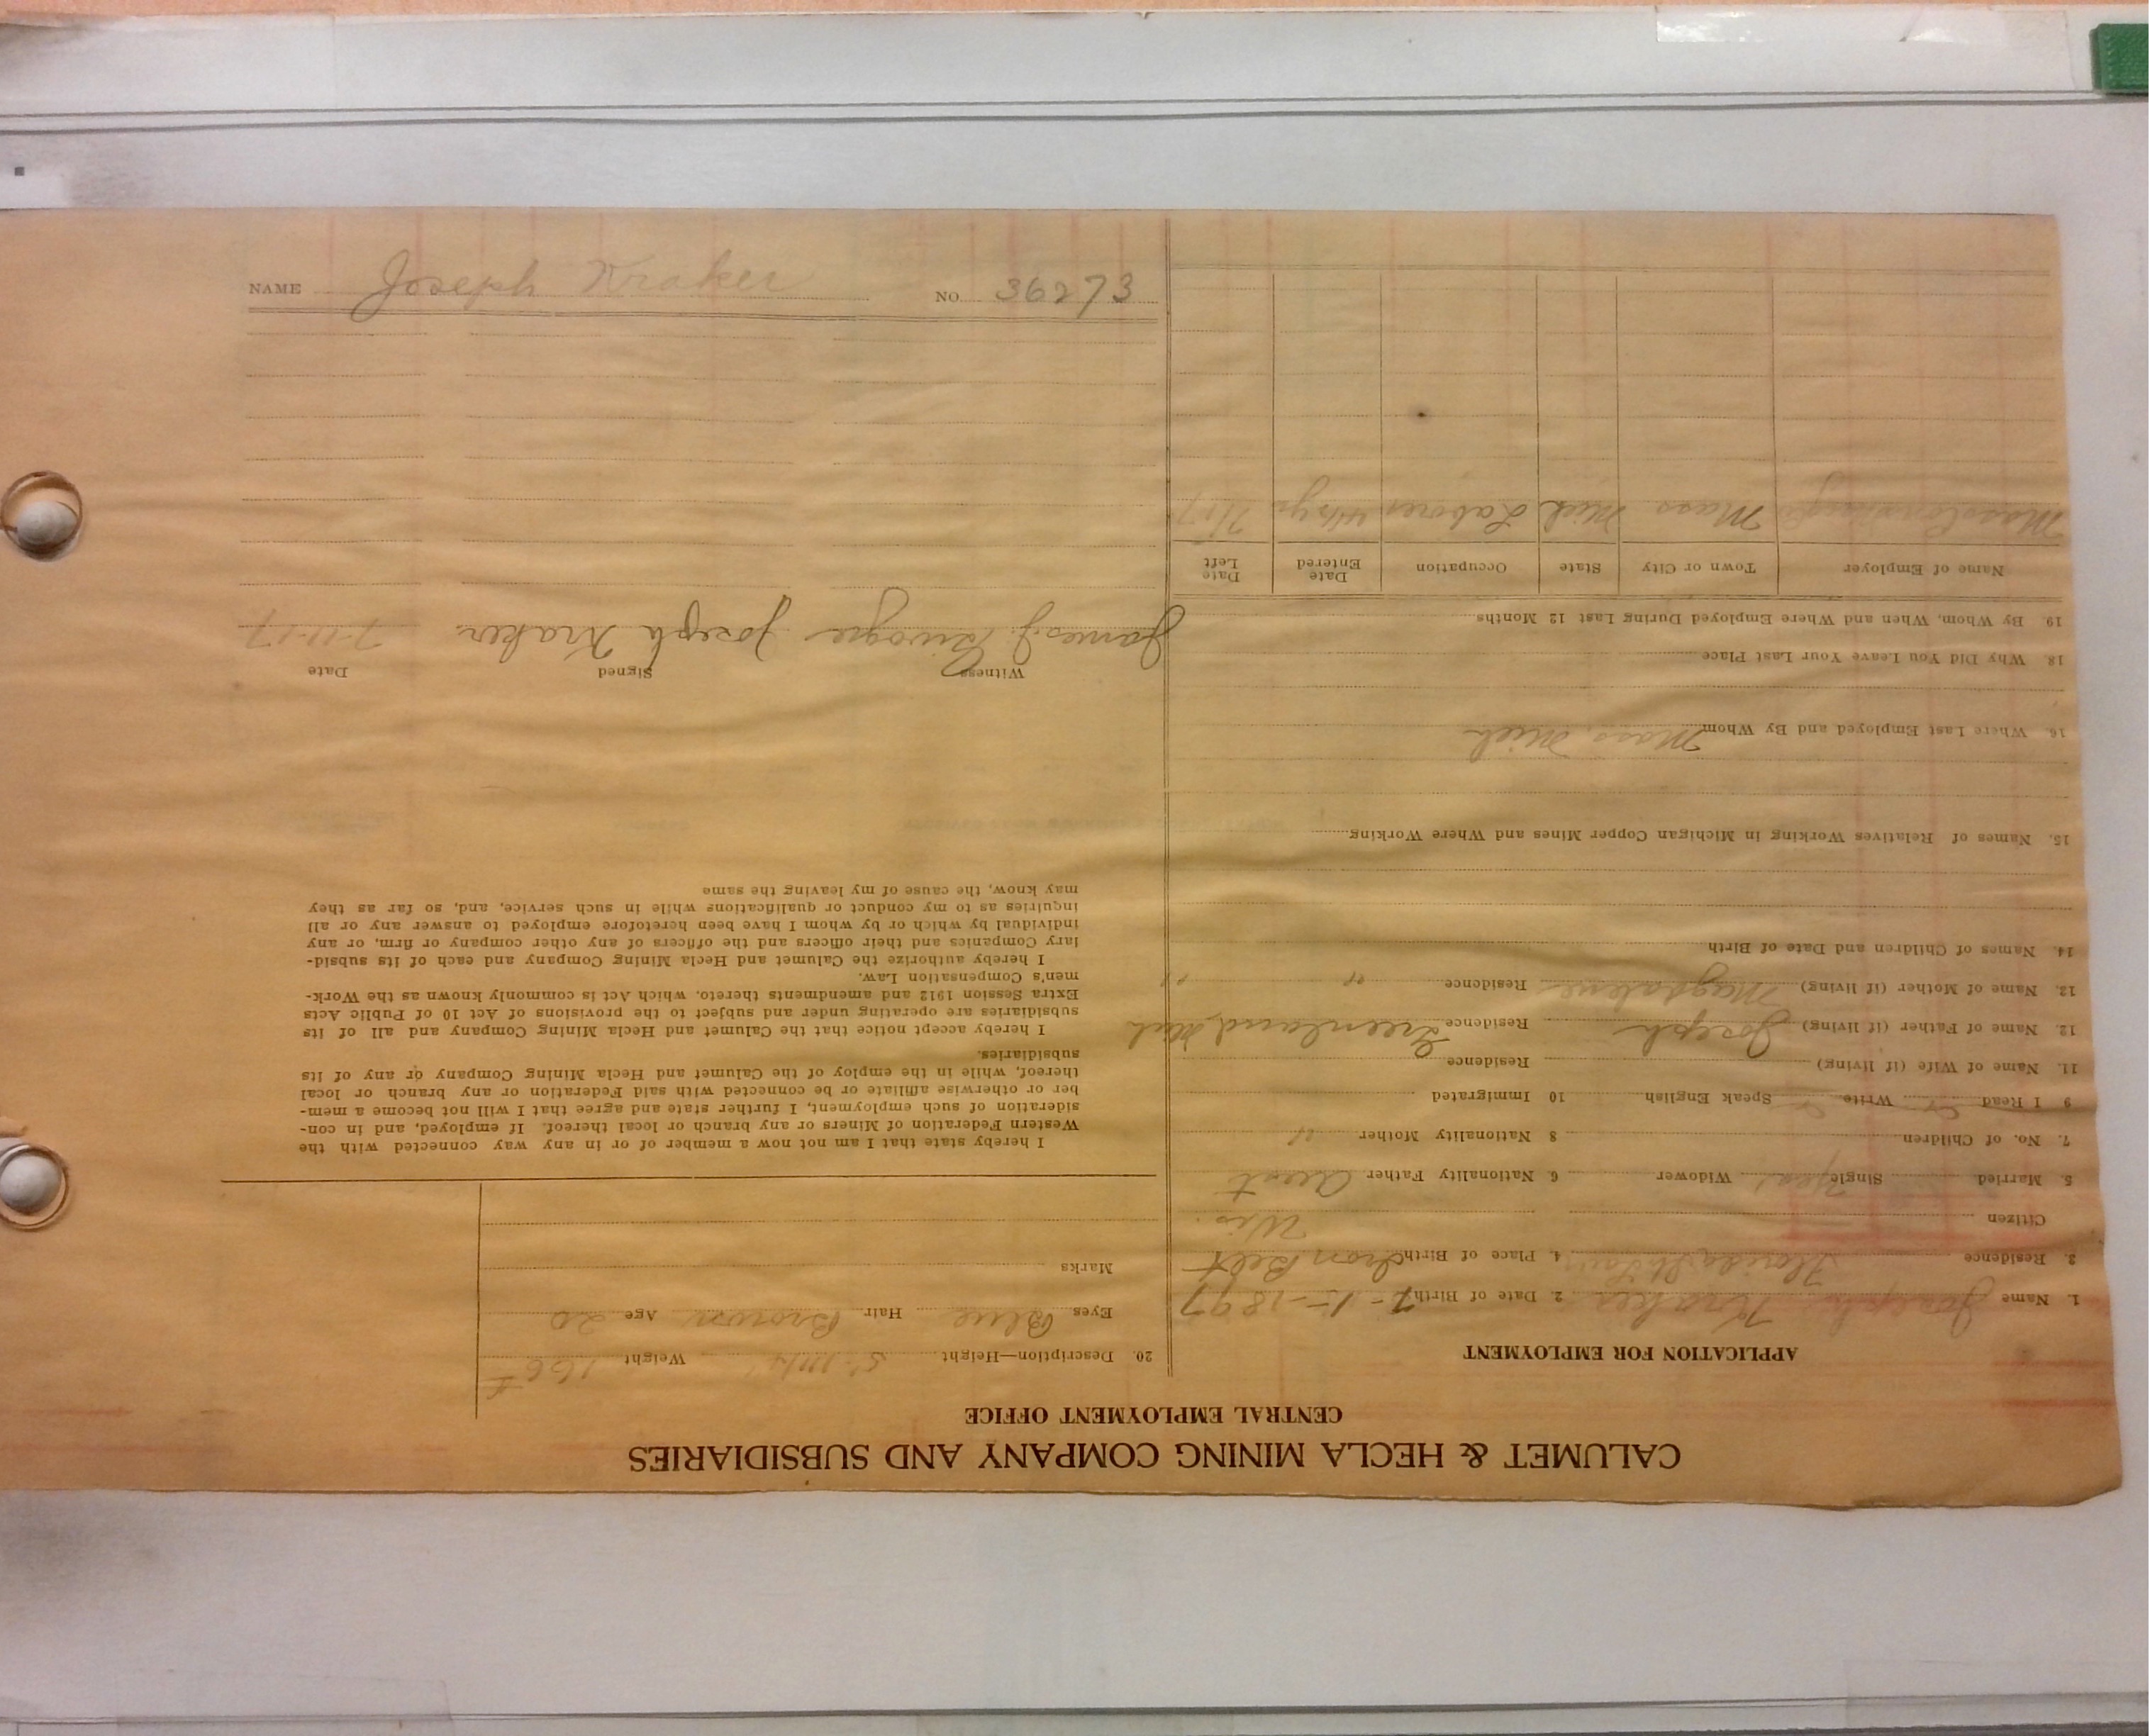 CALUMET & HECLA MINING COMPANY AND SUBSIDIARIES
CENTRAL EMPLOYMENT OFFICE
APPLICATION FOR EMPLOYMENT
1. Name Joseph Kraker 2. Date of Birth 7-15-1897
3. Residence Florida 4. Place of Birth Iron Belt
Wis.
Citizen
5. Married Single Yes Widower 6. Nationality Father Aust
7. No. of Children 8 Nationality Mother "
9 I Read Write Speak English 10 Immigrated
11. Name of Wife (if living) Residence
12. Name of Father (if living) Joseph Residence Greenland, Mich
12. Name of Mother (if living) Magdalene Residence " "
14. Names of Children and Date of Birth
15. Names of Relatives Working in Michigan Copper Mines and Where Working
16. Where Last Employed and By Whom Mass, Mich
18. Why Did You Leave Your Last Place
19. By Whom, When and Where Employed During Last 12 Months
Name of Employer Town or City State Occupation Date Entered Date Left
Mass Mich Laborer
20. Description—Height Weight 166
Eyes Blue Hair Brown Age 20
Marks
I hereby state that I am not now a member of or in any way connected with the
Western Federation of Miners or any branch or local thereof. If employed, and in con-
sideration of such employment, I further state and agree that I will not become a mem-
ber or otherwise affiliate or be connected with said Federation or any branch or local
thereof, while in the employ of the Calumet and Hecla Mining Company or any of its
subsidiaries.
I hereby accept notice that the Calumet and Hecla Mining Company and all of its
subsidiaries are operating under and subject to the provisions of Act 10 of Public Acts
Extra Session 1912 and amendments thereto, which Act is commonly known as the Work-
men's Compensation Law.
I hereby authorize the Calumet and Hecla Mining Company and each of its subsid-
iary Companies and their officers and the officers of any other company or firm, or any
individual by which or by whom I have been heretofore employed to answer any or all
inquiries as to my conduct or qualifications while in such service, and, so far as they
may know, the cause of my leaving the same
Witness Signed Date
James J. Joseph Kraker 7-11-17
NAME Joseph Kraker NO. 36273